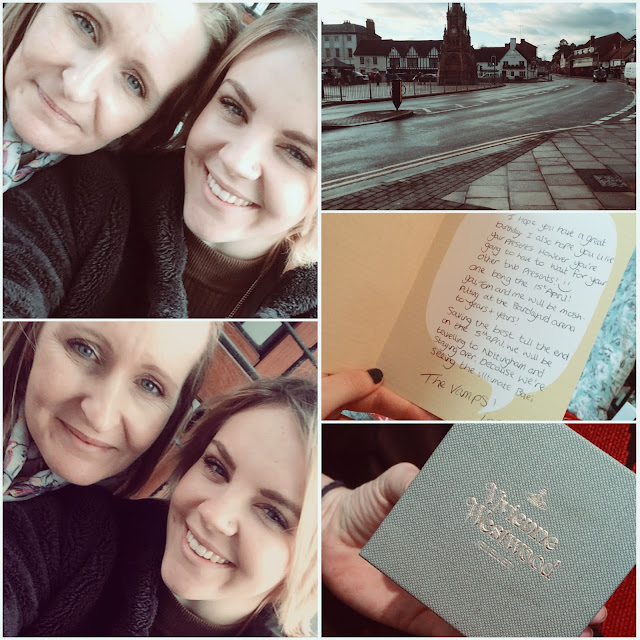 I hope you have a great
birthday. I also hope you like
your presents. However you're
going to have to wait for your
other two presents!!
one being the 1st April!
you, Tom and me will be mosh
pitting at the Barclaycard arena
to years + years!
Saving the best till the end
on the 5th April we will be
travelling to Nottingham and
staying over because we're
seeing the ultimate Baes
The Vamps!
Vivienne
Westwood